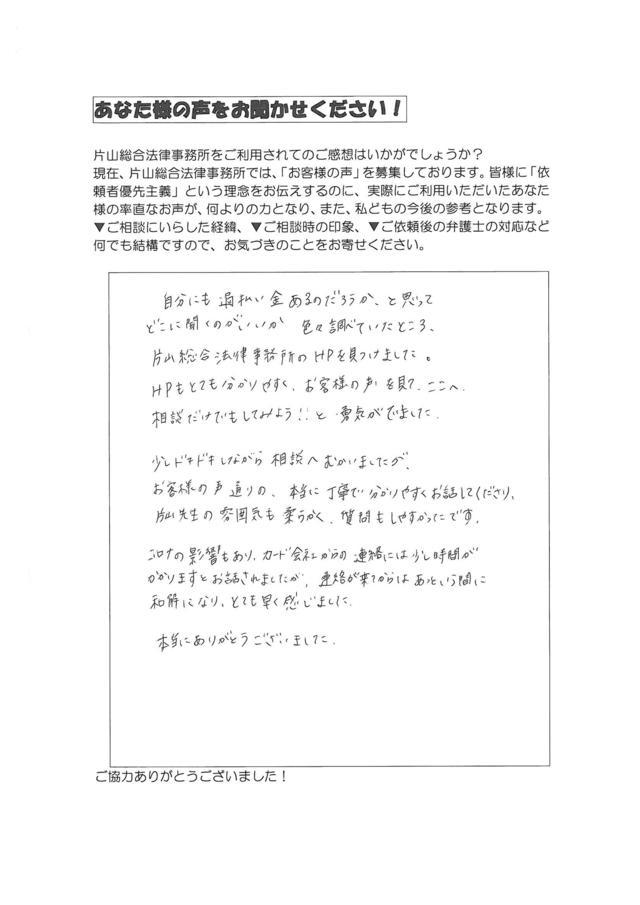 あなた様の声をお聞かせください！
片山総合法律事務所をご利用されてのご感想はいかがでしょうか？
現在、片山総合法律事務所では、「お客様の声」を募集しております。皆様に「依
頼者優先主義」という理念をお伝えするのに、実際にご利用いただいたあなた
様の率直なお声が、何よりの力となり、また、私どもの今後の参考となります。
▼ご相談にいらした経緯、▼ご相談時の印象、▼ご依頼後の弁護士の対応など
何でも結構ですので、お気づきのことをお寄せください。
自分にも過払い金あるのだろうか、と思って
どこに聞くのがいいか 色々調べていたところ、
片山総合法律事務所のHPを見つけました。
HPもとても分かりやすく、お客様の声を見て、ここへ
相談だけでもしてみよう!!と 勇気がでました.
少しドキドキしながら 相談へ むかいましたが、
お客様の声通りの、本当に丁寧で分かりやすくお話してくださり、
片山先生の雰囲気も柔らかく、質問もしやすかったです。
コロナの影響もあり、カード会社からの連絡には少し時間が
かかりますとお話されましたが、連絡が来てからはあっという間に
和解になり、とても早く感じました.
本当にありがとうございました.
ご協力ありがとうございました！